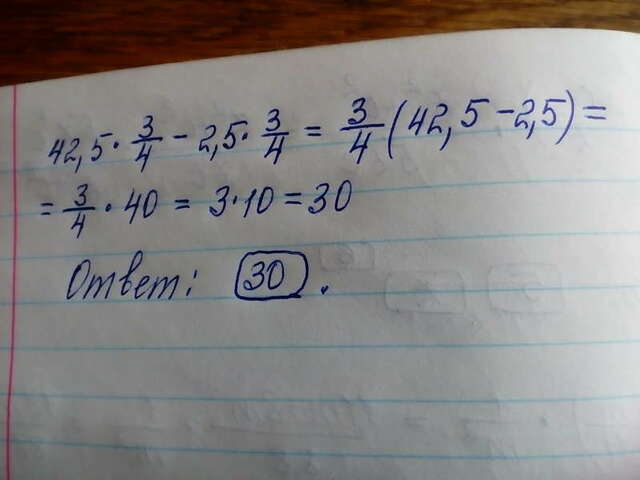 42,5 · 3/4 - 2,5 · 3/4 = 3/4 (42,5 - 2,5) =
= 3/4 · 40 = 3 · 10 = 30
Ответ: 30.